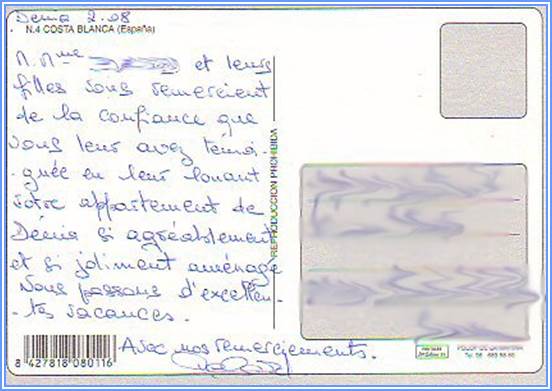 Denia 2.08
N.4 COSTA BLANCA (España)
M. Mme et leurs
filles vous remercient
de la confiance que
vous leur avez témoi-
gnée en leur louant
votre appartement de
Dénia si agréablement
et si joliment aménagé
Nous passons d'excellen-
tes vacances.
Avec nos remerciements.
REPRODUCCION PROHIBIDA
8 427818 080116